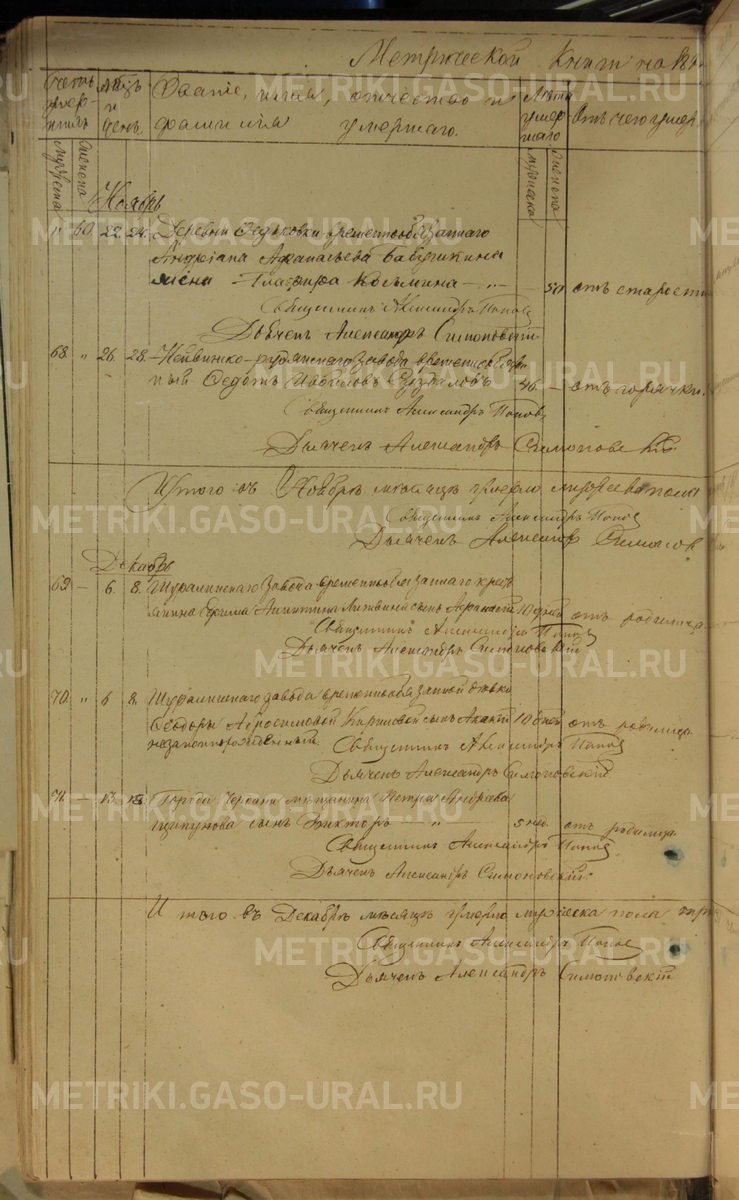 Метрической Книги на 186
Счетъ умер-шихъ
Мѣсяцъ и день.
Званіе, имя, отчество и фамилія умершаго.
Лѣта умершаго
Отъ чего умеръ
Мужеска
Женска
мужеска
женска
Ноябрь
" 60. 22. 24. Деревни Федьковки временнообязаннаго
Андреяна Афанасьева Бабушкина
жена Глафира Косьмина — „ — 50 отъ старости
Священникъ Александръ Поповъ
Дьячекъ Александръ Симоновскій
68. " 26. 28. Нейвинско-рудянскаго завода временнообязан-
ный Федотъ Ивойловъ 46 — отъ горячки.
Священникъ Александръ Поповъ
Дьячекъ Александръ Симоновскій
Итого въ Ноябрѣ мѣсяцѣ умерло мужеска пола
Священникъ Александръ Поповъ
Дьячекъ Александръ Симонов
Декабрь
69. — 6. 8. Шуралинскаго завода временнообязаннаго крестъ
янина Ефима Никитина сынъ 10 дней отъ родимца
Священникъ Александръ Поповъ
Дьячекъ Александръ Симоновскій
70. " 6 8. Шуралинскаго завода временнообязанной дѣвки
Феодоры Абросимовой Кириловой сынъ Акакій 10 дней отъ родимца
незаконнорожденный. Священникъ Александръ Поповъ
Дьячекъ Александръ Симоновскій
71. — 13. 13. Города мѣщанина Петра Андреева
сынъ Викторъ — „ — 5 отъ родимца
Священникъ Александръ Поповъ
Дьячекъ Александръ Симоновскій.
Итого въ Декабрѣ мѣсяцѣ умерло мужеска пола три
Священникъ Александръ Поповъ
Дьячекъ Александръ Симоновскій
METRIKI.GASO-URAL.RU